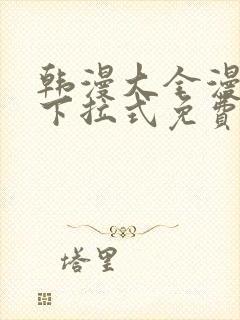 韩漫大全漫
下拉式免费
塔里